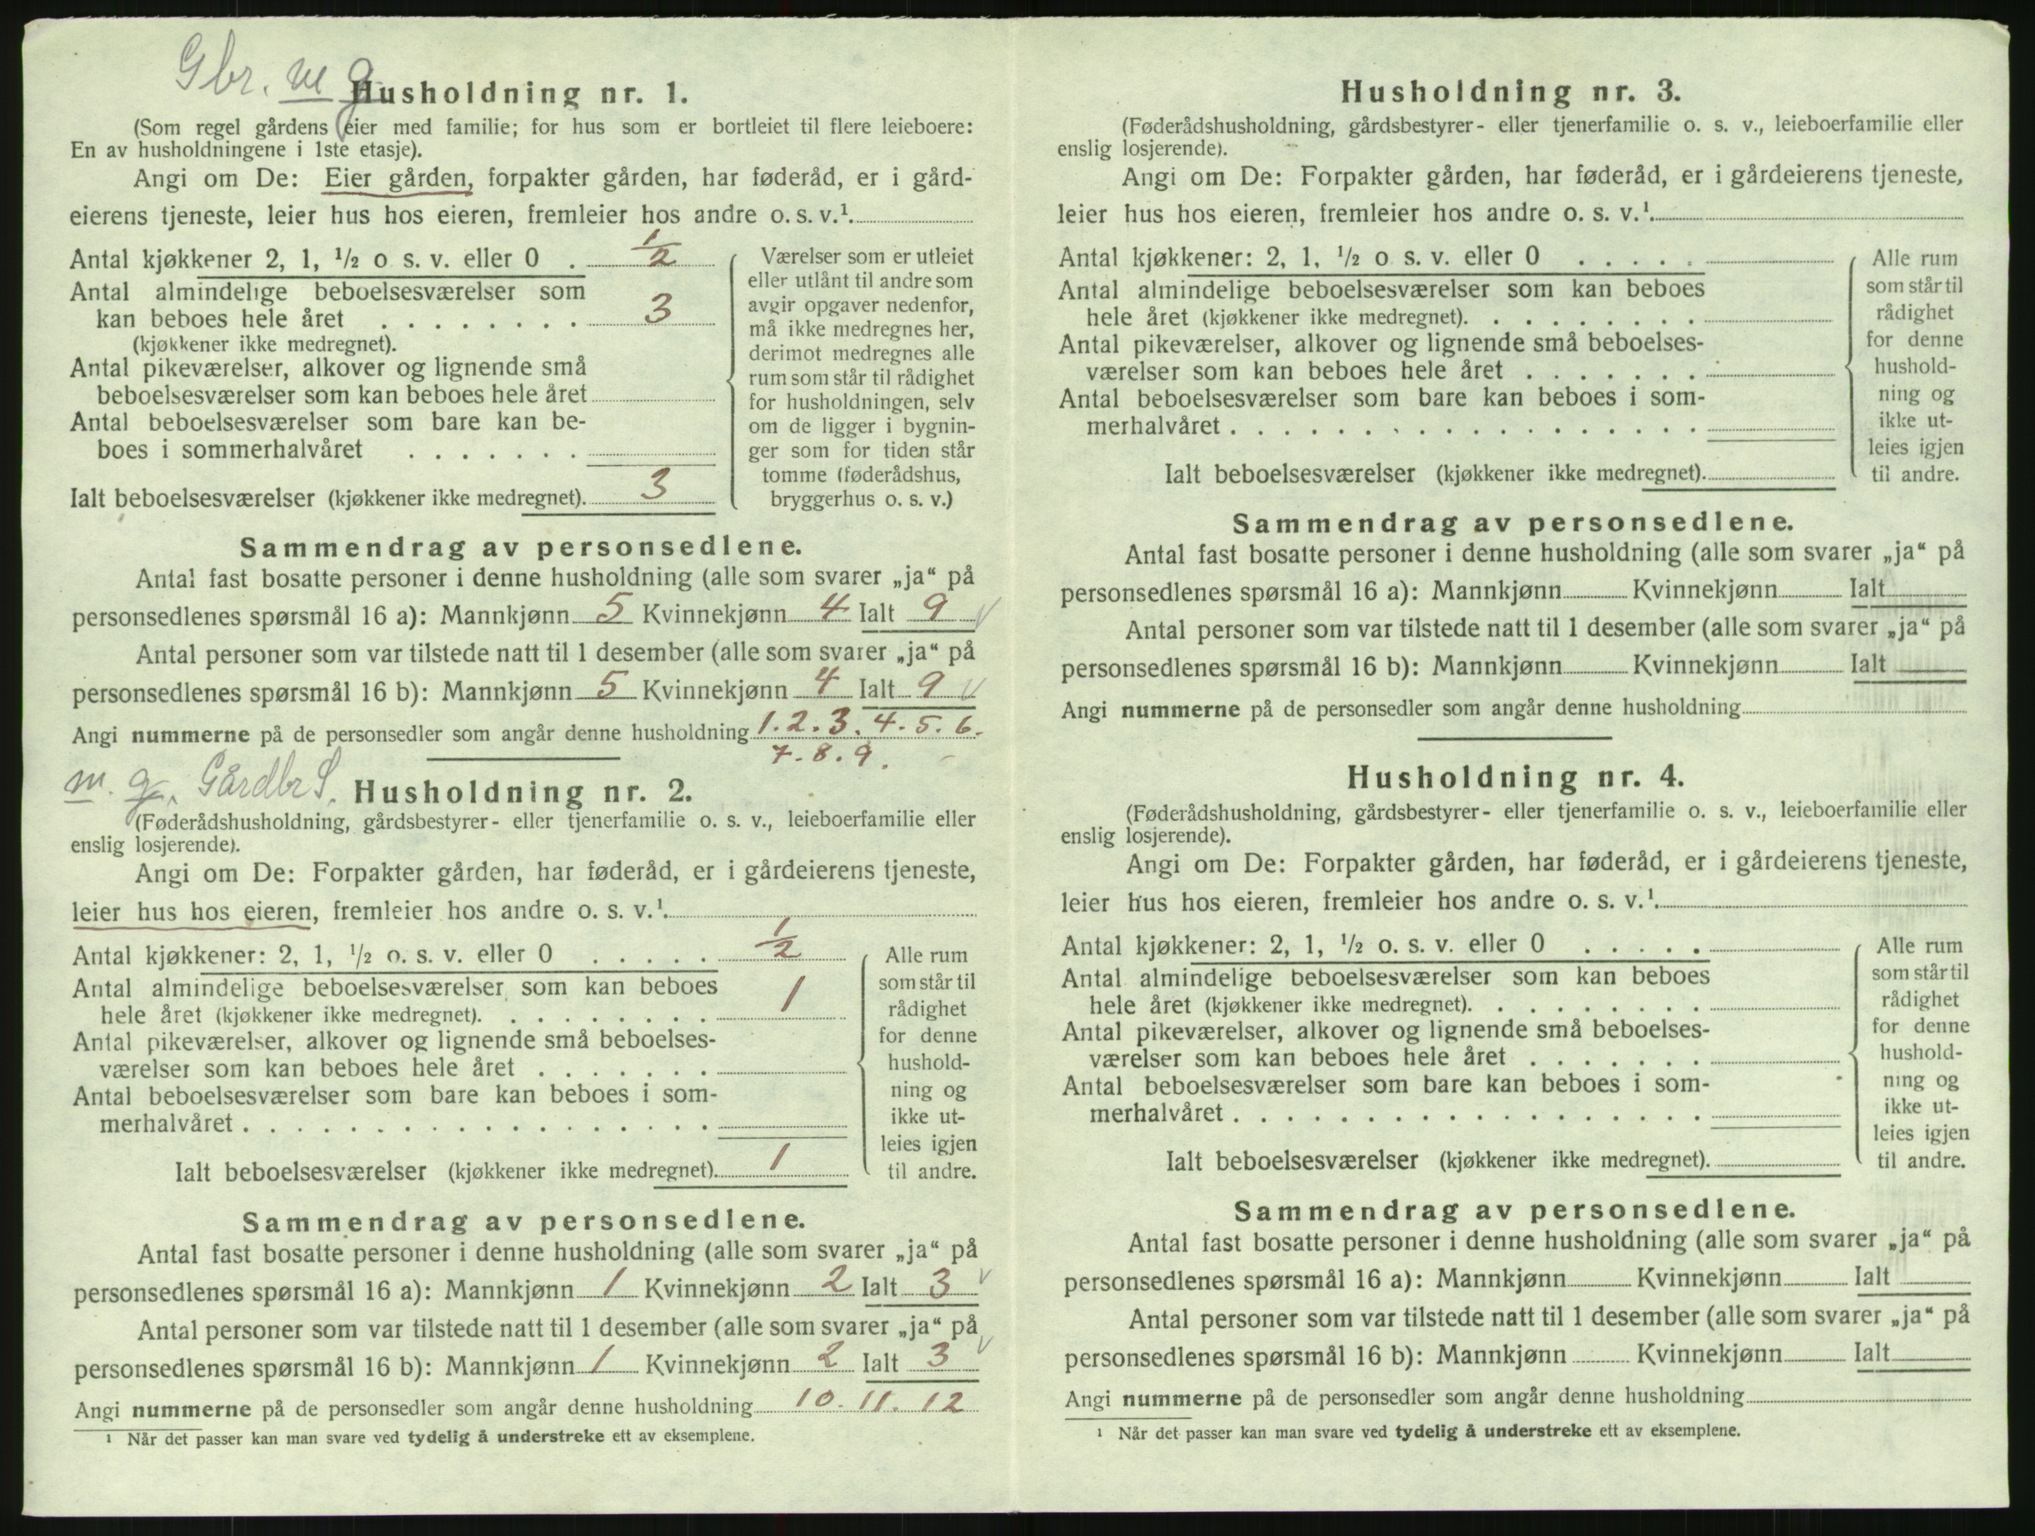 Gbr. m g
Husholdning nr. 1.
(Som regel gårdens eier med familie; for hus som er bortleiet til flere leieboere:
En av husholdningene i 1ste etasje).
Angi om De: Eier gården, forpakter gården, har føderåd, er i gård-
eierens tjeneste, leier hus hos eieren, fremleier hos andre o. s. v.¹.
Antal kjøkkener 2, 1, ½ o s. v. eller 0 . ½
Antal almindelige beboelsesværelser som
kan beboes hele året . . . . . . . . 3
(kjøkkener ikke medregnet).
Antal pikeværelser, alkover og lignende små
beboelsesværelser som kan beboes hele året
Antal beboelsesværelser som bare kan be-
boes i sommerhalvåret . . . . . . .
Ialt beboelsesværelser (kjøkkener ikke medregnet). 3
Værelser som er utleiet
eller utlånt til andre som
avgir opgaver nedenfor,
må ikke medregnes her,
derimot medregnes alle
rum som står til rådighet
for husholdningen, selv
om de ligger i bygnin-
ger som for tiden står
tomme (føderådshus,
bryggerhus o. s. v.)
Sammendrag av personsedlene.
Antal fast bosatte personer i denne husholdning (alle som svarer „ja“ på
personsedlenes spørsmål 16 a): Mannkjønn 5 Kvinnekjønn 4 Ialt 9 √
Antal personer som var tilstede natt til 1 desember (alle som svarer „ja“ på
personsedlenes spørsmål 16 b): Mannkjønn 5 Kvinnekjønn 4 Ialt 9 √
Angi nummerne på de personsedler som angår denne husholdning 1. 2. 3. 4. 5. 6.
7. 8. 9.
m. g. Gårdbr S.
Husholdning nr. 2.
(Føderådshusholdning, gårdsbestyrer- eller tjenerfamilie o. s. v., leieboerfamilie eller
enslig losjerende).
Angi om De: Forpakter gården, har føderåd, er i gårdeierens tjeneste,
leier hus hos eieren, fremleier hos andre o. s. v.¹.
Antal kjøkkener: 2, 1, ½ o. s. v. eller 0 . . . . . ½
Antal almindelige beboelsesværelser som kan beboes
hele året (kjøkkener ikke medregnet). . . . . . . . 1
Antal pikeværelser, alkover og lignende små beboelses-
værelser som kan beboes hele året . . . . . . .
Antal beboelsesværelser som bare kan beboes i som-
merhalvåret . . . . . . . . . . . . . . . . . .
Ialt beboelsesværelser (kjøkkener ikke medregnet). 1
Alle rum
som står til
rådighet
for denne
hushold-
ning og
ikke ut-
leies igjen
til andre.
Sammendrag av personsedlene.
Antal fast bosatte personer i denne husholdning (alle som svarer „ja“ på
personsedlenes spørsmål 16 a): Mannkjønn 1 Kvinnekjønn 2 Ialt 3 √
Antal personer som var tilstede natt til 1 desember (alle som svarer „ja“ på
personsedlenes spørsmål 16 b): Mannkjønn 1 Kvinnekjønn 2 Ialt 3 √
Angi nummerne på de personsedler som angår denne husholdning 10. 11. 12
¹ Når det passer kan man svare ved tydelig å understreke ett av eksemplene.
Husholdning nr. 3.
(Føderådshusholdning, gårdsbestyrer- eller tjenerfamilie o. s. v., leieboerfamilie eller
enslig losjerende).
Angi om De: Forpakter gården, har føderåd, er i gårdeierens tjeneste,
leier hus hos eieren, fremleier hos andre o. s. v.¹.
Antal kjøkkener: 2, 1, ½ o s. v. eller 0 . . . . .
Antal almindelige beboelsesværelser som kan beboes
hele året (kjøkkener ikke medregnet). . . . . . . .
Antal pikeværelser, alkover og lignende små beboelses-
værelser som kan beboes hele året . . . . . . .
Antal beboelsesværelser som bare kan beboes i som-
merhalvåret . . . . . . . . . . . . . . . . . .
Ialt beboelsesværelser (kjøkkener ikke medregnet).
Alle rum
som står til
rådighet
for denne
hushold-
ning og
ikke ut-
leies igjen
til andre.
Sammendrag av personsedlene.
Antal fast bosatte personer i denne husholdning (alle som svarer „ja“ på
personsedlenes spørsmål 16 a): Mannkjønn Kvinnekjønn Ialt
Antal personer som var tilstede natt til 1 desember (alle som svarer „ja“ på
personsedlenes spørsmål 16 b): Mannkjønn Kvinnekjønn Ialt
Angi nummerne på de personsedler som angår denne husholdning
Husholdning nr. 4.
(Føderådshusholdning, gårdsbestyrer- eller tjenerfamilie o. s. v., leieboerfamilie eller
enslig losjerende).
Angi om De: Forpakter gården, har føderåd, er i gårdeierens tjeneste,
leier hus hos eieren, fremleier hos andre o. s. v.¹.
Antal kjøkkener: 2, 1, ½ o. s. v. eller 0 . . . . .
Antal almindelige beboelsesværelser som kan beboes
hele året (kjøkkener ikke medregnet). . . . . . . .
Antal pikeværelser, alkover og lignende små beboelses-
værelser som kan beboes hele året . . . . . . .
Antal beboelsesværelser som bare kan beboes i som-
merhalvåret . . . . . . . . . . . . . . . . . .
Ialt beboelsesværelser (kjøkkener ikke medregnet).
Alle rum
som står til
rådighet
for denne
hushold-
ning og
ikke ut-
leies igjen
til andre.
Sammendrag av personsedlene.
Antal fast bosatte personer i denne husholdning (alle som svarer „ja“ på
personsedlenes spørsmål 16 a): Mannkjønn Kvinnekjønn Ialt
Antal personer som var tilstede natt til 1 desember (alle som svarer „ja“ på
personsedlenes spørsmål 16 b): Mannkjønn Kvinnekjønn Ialt
Angi nummerne på de personsedler som angår denne husholdning
¹ Når det passer kan man svare ved tydelig å understreke ett av eksemplene.